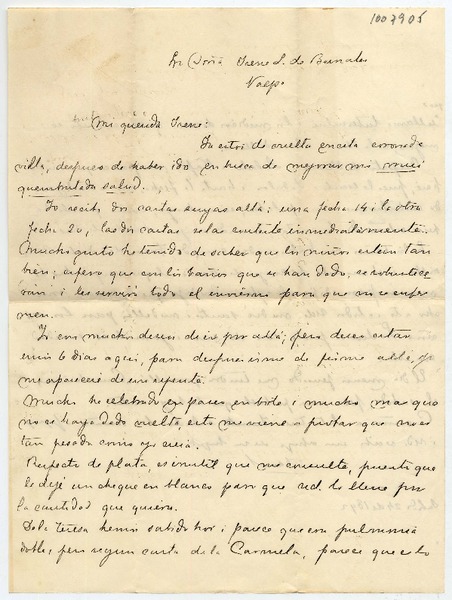 1007905
Sra Doña Irene S. de Bernales
Valpo
Mi querida Irene:
Ya estoi de vuelta en esta
villa, despues de haber ido en busca de mejorar mi mui
quembrantada salud.
Yo recibí dos cartas suyas allá; una fecha 14 i la otra
fecha 20, las dos cartas se las contesté inmediatamente.
Mucho gusto he tenido de saber que los niños estén tan
bien; espero que con los baños que se han dado, se robustes-
can i les servirá todo el invierno para que no se enfer
men.
Yo con muchos deseos de ir por allá; pero deseo estar
unos 6 dias aqui, para despues irme de firme alla,
me aparecere de un repente.
Mucho he celebrado su paseo en bote i mucho mas que
no se haya dado vuelta, esto me viene a probar que no es
tan pesada como yo creia.
Respecto de plata, es inutil que me consulte, puesto que
le dejé un cheque en blanco para que Ud. lo llene por
la cantidad que quiera.
De la Teresa hemos sabido hoi i parece que era pulmonia
doble, pero segun carta de la Carmela, parece que esto